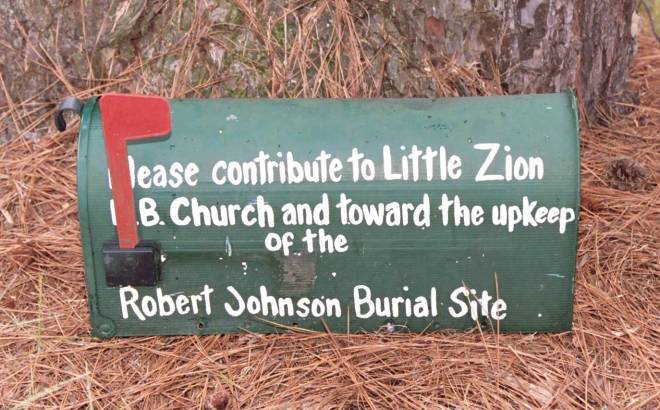 lease contribute to Little Zion
.B. Church and toward the upkeep
of the
Robert Johnson Burial Site